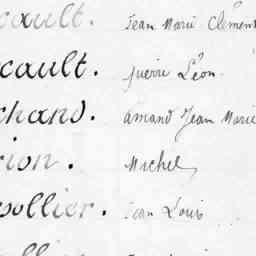 cault. Jean Marie Clément
cault. Pierre Léon.
chand. Amand Jean Marie
rion. Michel
ollier. Jean Louis